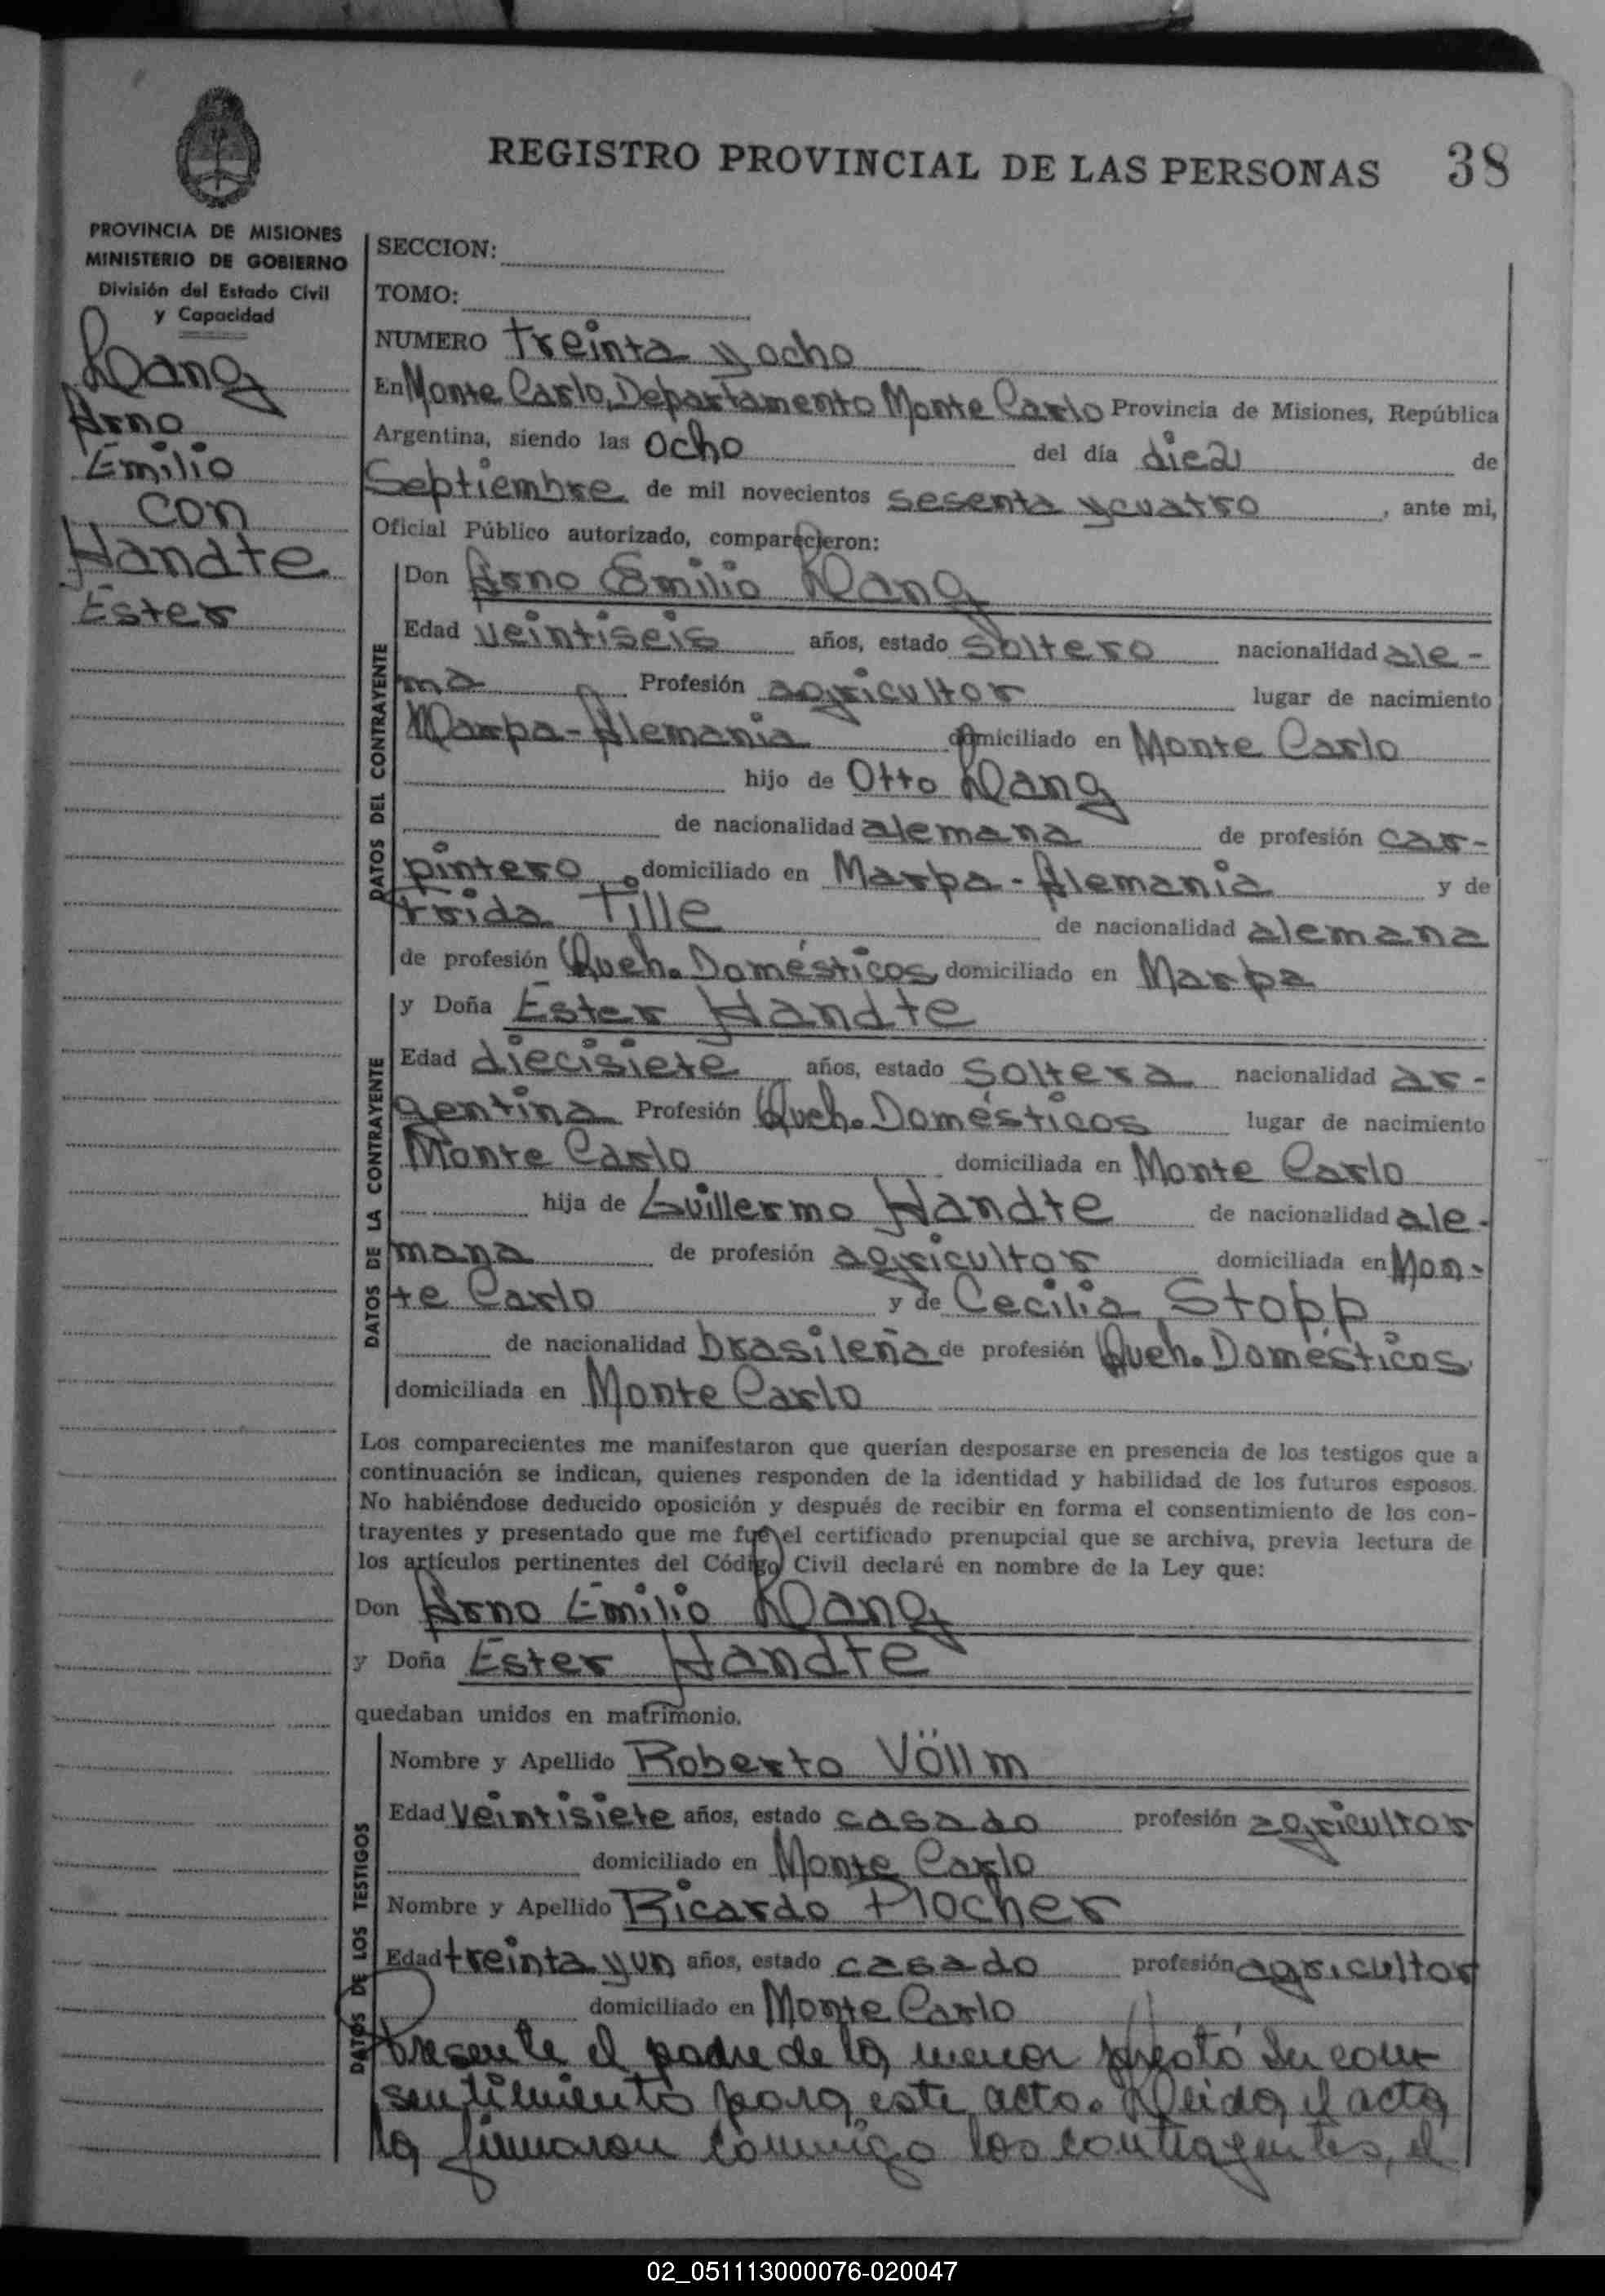 REGISTRO PROVINCIAL DE LAS PERSONAS 38
PROVINCIA DE MISIONES
MINISTERIO DE GOBIERNO
División del Estado Civil
y Capacidad
Lang
Arno
Emilio
con
Handte
Ester
SECCION:
TOMO:
NUMERO treinta y ocho
En Monte Carlo, Departamento Monte Carlo Provincia de Misiones, República
Argentina, siendo las ocho del día diez de
Septiembre de mil novecientos sesenta y cuatro, ante mi,
Oficial Público autorizado, comparecieron:
DATOS DEL CONTRAYENTE
Don Arno Emilio Lang
Edad veintiseis años, estado soltero nacionalidad ale-
ma Profesión agricultor lugar de nacimiento
Marpa-Alemania domiciliado en Monte Carlo
hijo de Otto Lang
de nacionalidad alemana de profesión car-
pintero domiciliado en Marpa-Alemania y de
Frida Tille de nacionalidad alemana
de profesión Queh. Domésticos, domiciliado en Marpa
DATOS DE LA CONTRAYENTE
y Doña Ester Handte
Edad diecisiete años, estado soltera nacionalidad ar-
gentina Profesión Queh. Domésticos lugar de nacimiento
Monte Carlo domiciliada en Monte Carlo
hija de Guillermo Handte de nacionalidad ale-
mana de profesión agricultor domiciliada en Mon-
te Carlo y de Cecilia Stopp
de nacionalidad brasileña de profesión Queh. Domésticos
domiciliada en Monte Carlo
Los comparecientes me manifestaron que querían desposarse en presencia de los testigos que a
continuación se indican, quienes responden de la identidad y habilidad de los futuros esposos.
No habiéndose deducido oposición y después de recibir en forma el consentimiento de los con-
trayentes y presentado que me fué el certificado prenupcial que se archiva, previa lectura de
los artículos pertinentes del Código Civil declaré en nombre de la Ley que:
Don Arno Emilio Lang
y Doña Ester Handte
quedaban unidos en matrimonio.
DATOS DE LOS TESTIGOS
Nombre y Apellido Roberto Völlm
Edad veintisiete años, estado casado profesión agricultor
domiciliado en Monte Carlo
Nombre y Apellido Ricardo Plocher
Edad treinta y un años, estado casado profesión agricultor
domiciliado en Monte Carlo
Presente el padre de la menor prestó su con-
sentimiento para este acto. Leida el acta
la firmaron conmigo los contrayentes, el
02_051113000076-020047